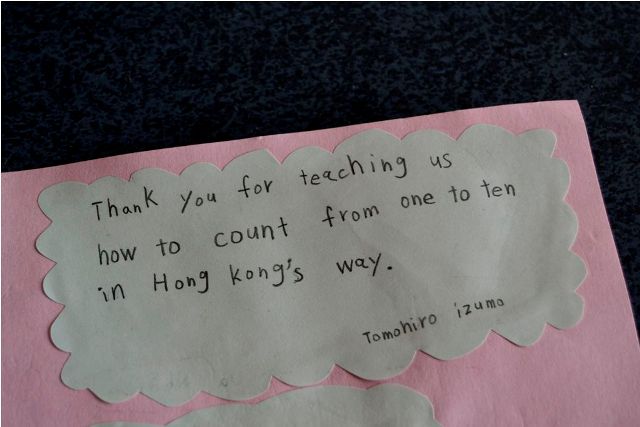 Thank you for teaching us
how to count from one to ten
in Hong kong's way.
Tomohiro izumo